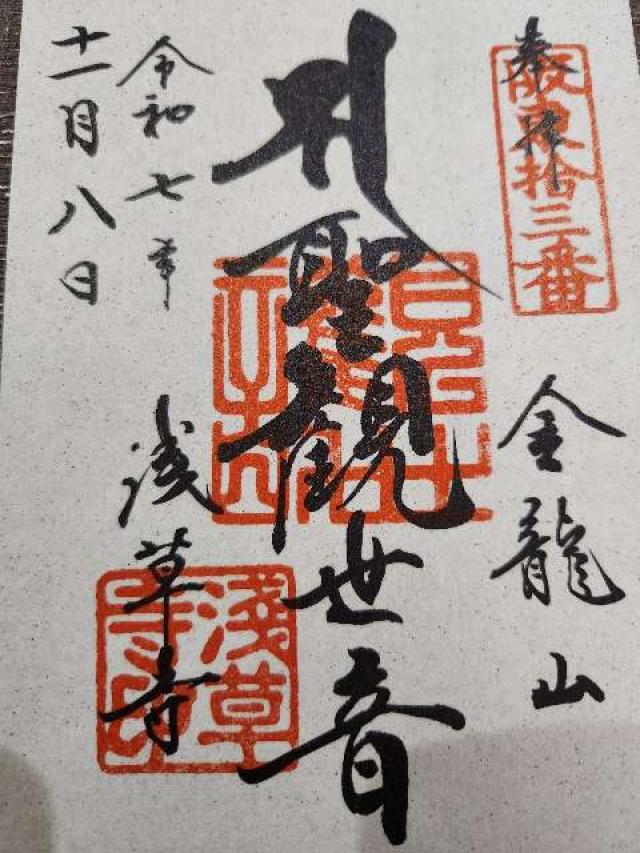 奉拝
阪東拾三番
金龍山
聖観世音
浅草寺
淺草寺印
令和七年
十一月八日